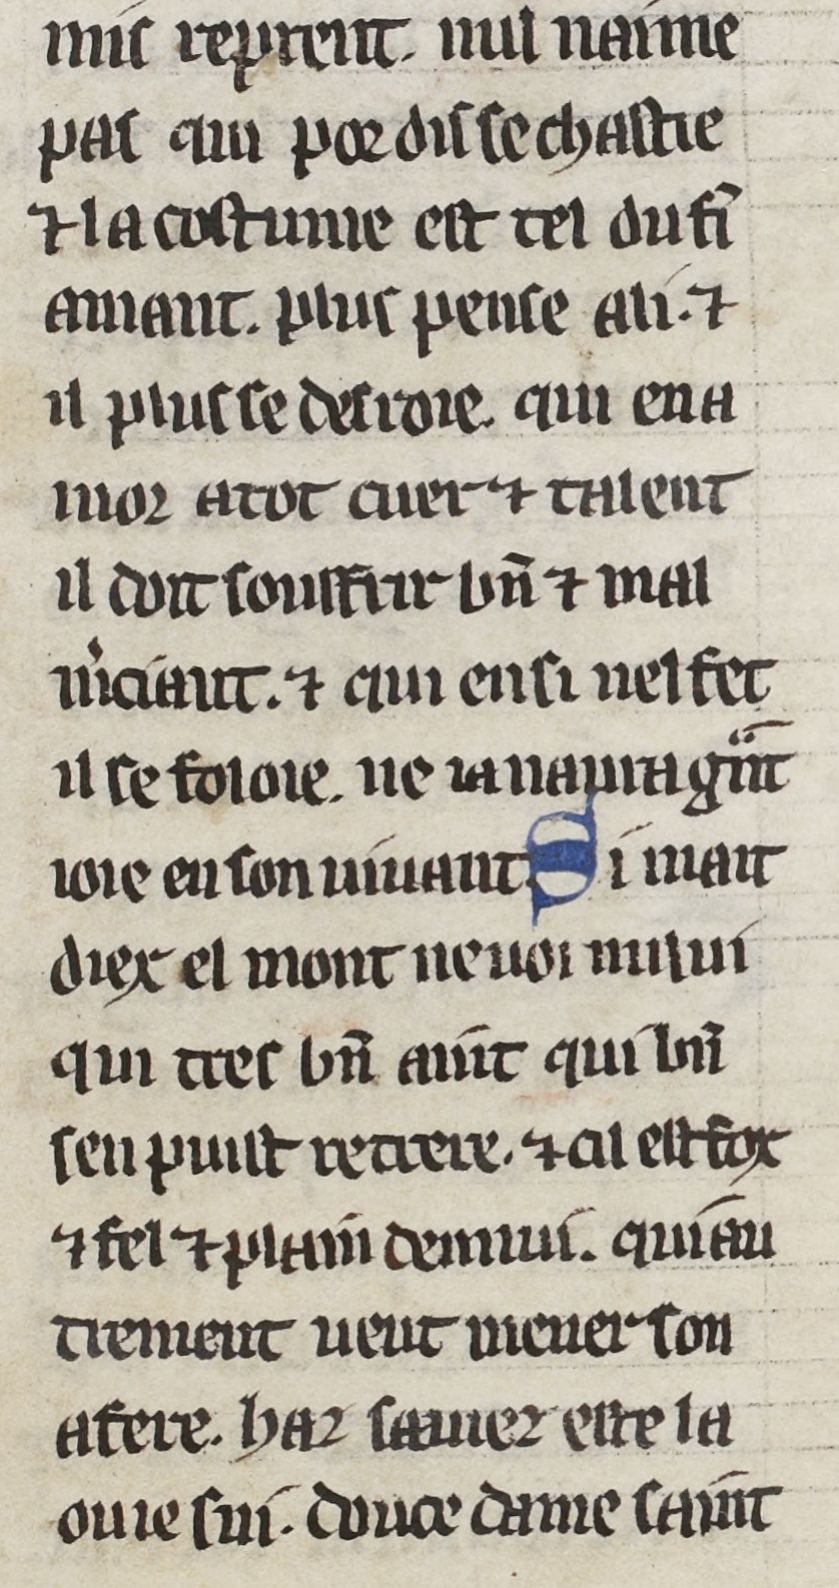 mis reprent. nul naime
pas qui por dis se chastie
⁊ la costume est tel du fi̅
amant. plus pense a li. ⁊
il plus se desroie. qui en a
mor a tot cuer ⁊ talent
il doit souffrir bn̅ ⁊ mal
m̓ciant. ⁊ qui ensi nel fet
il se foloie. ne ia naura gͣnt
ioie en son uiuant. Si mait
diex el mont ne uoi nului
qui tres bn̅ aint qui bn̅
sen puist retrere. ⁊ cil est fox
⁊ fel ⁊ plain dennui. qui au
trement ueut mener son
afere. har sauiez estre la
ou ie sui. douce dame saint